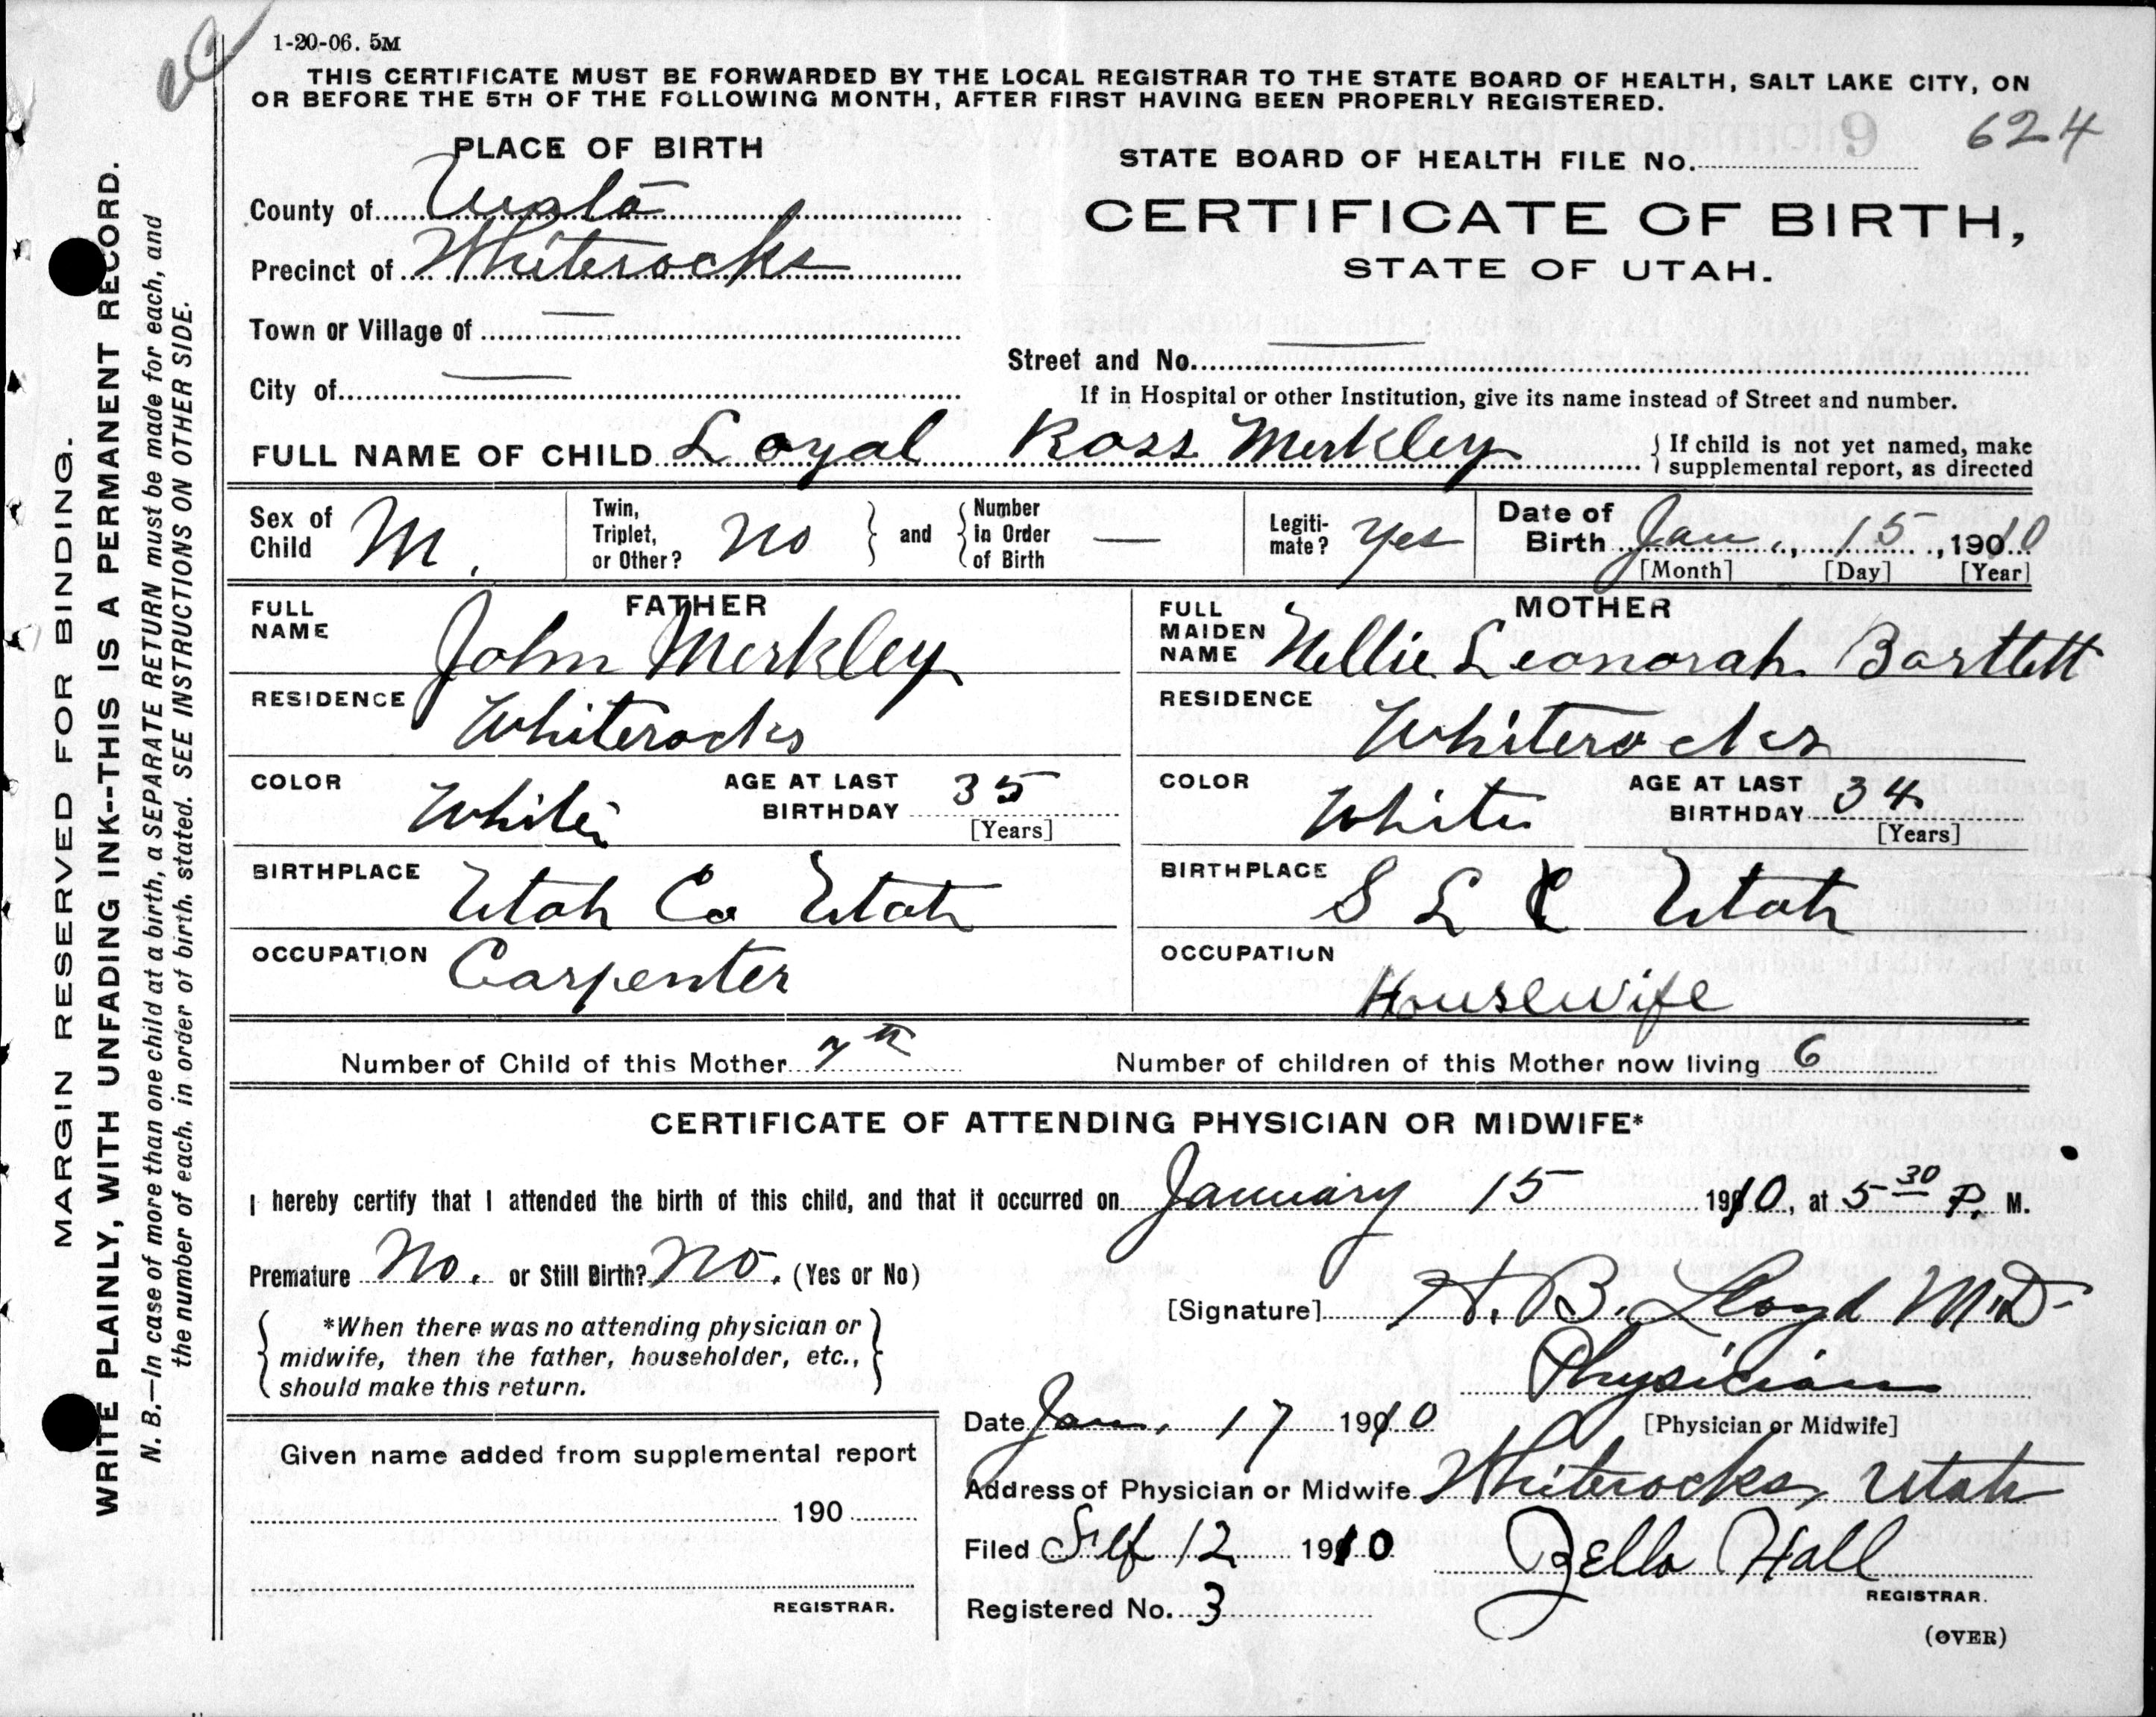 1-20-06. 5M
THIS CERTIFICATE MUST BE FORWARDED BY THE LOCAL REGISTRAR TO THE STATE BOARD OF HEALTH, SALT LAKE CITY, ON
OR BEFORE THE 5TH OF THE FOLLOWING MONTH, AFTER FIRST HAVING BEEN PROPERLY REGISTERED.
624
PLACE OF BIRTH
STATE BOARD OF HEALTH FILE No.
County of
CERTIFICATE OF BIRTH,
Precinct of Whiterocks
STATE OF UTAH.
Town or Village of —
Street and No. —
City of —
If in Hospital or other Institution, give its name instead of Street and number.
FULL NAME OF CHILD Loyal Ross Merkley
If child is not yet named, make
supplemental report, as directed
Sex of
Child M.
Twin,
Triplet,
or Other? No
and
Number
in Order
of Birth —
Legiti-
mate? Yes
Date of
Birth Jan., 15, 1910
[Month] [Day] [Year]
FATHER
FULL
NAME John Merkley
RESIDENCE Whiterocks
COLOR White
AGE AT LAST
BIRTHDAY 35
[Years]
BIRTHPLACE Utah Co Utah
OCCUPATION Carpenter
MOTHER
FULL
MAIDEN
NAME Nellie Leonorah Bartlett
RESIDENCE Whiterocks
COLOR White
AGE AT LAST
BIRTHDAY 34
[Years]
BIRTHPLACE S L C Utah
OCCUPATION Housewife
Number of Child of this Mother 7th
Number of children of this Mother now living 6
CERTIFICATE OF ATTENDING PHYSICIAN OR MIDWIFE*
I hereby certify that I attended the birth of this child, and that it occurred on January 15 1910, at 5 30 P. M.
Premature No. or Still Birth? No. (Yes or No)
[Signature] H. B. Lloyd M.D.
*When there was no attending physician or
midwife, then the father, householder, etc.,
should make this return.
Physician
[Physician or Midwife]
Date Jan. 17 1910
Address of Physician or Midwife Whiterocks, Utah
Filed 12 1910
Zella Hall
REGISTRAR.
Registered No. 3
(OVER)
Given name added from supplemental report
190
REGISTRAR.
MARGIN RESERVED FOR BINDING.
WRITE PLAINLY, WITH UNFADING INK--THIS IS A PERMANENT RECORD.
N. B.—In case of more than one child at a birth, a SEPARATE RETURN must be made for each, and
the number of each, in order of birth, stated. SEE INSTRUCTIONS ON OTHER SIDE.